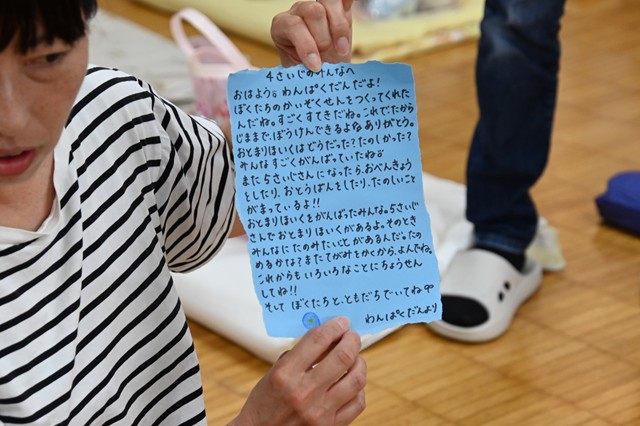 4さいじのみんなへ
おはよう♡ わんぱくだんだよ!
ぼくたちのかいぞくせんをつくってくれた
んだね。すごくすてきだね。これで、たから
じままで、ぼうけんできるよ ありがとう。
おとまりほいくはどうだった?たのしかった?
みんなすごくがんばっていたね♡
また 5さいじさんになったら、おべんきょう
をしたり、おとうばんをしたり、たのしいこと
がまっているよ!!
おとまりほいくをがんばったみんな。5さいじ
さんでおとまりほいくがあるよ。そのとき
みんなに たのみたいことがあるんだ。たの
めるかな?またてがみをかくから、よんでね。
これからもいろいろなことにちょうせん
してね!!
そして ぼくたちと、ともだちでいてね
わんぱくだんより